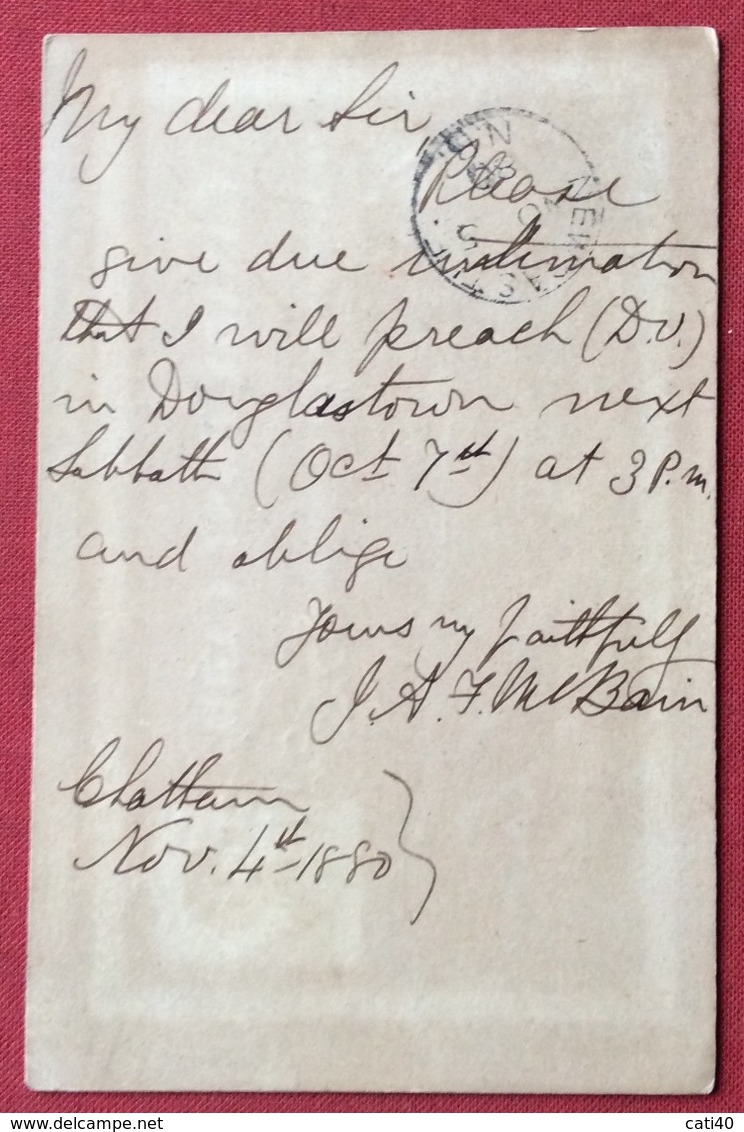 My dear Sir,
Please
give due intimation
that I will preach (D.V.)
in Douglastown next
Sabbath (Oct 7th) at 3 P.m.
and oblige
Yours my faithfully
J. A. F. McBain
Chatham
Nov. 4th 1880
cati40